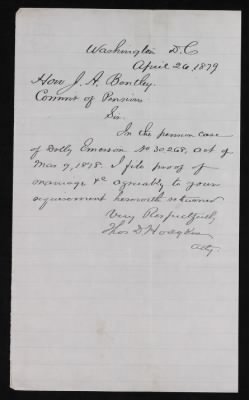 Washington D.C
April 26, 1879
Hon J. A. Bentley.
Commr of Pensions
Sir.
In the pension case
of Dolly Emerson No 30268, act of
Mar 9, 1878. I file proof of
marriage &c agreeably to your
requirement herewith returned
Very Respectfully
Thos D Hodgkin
Atty.